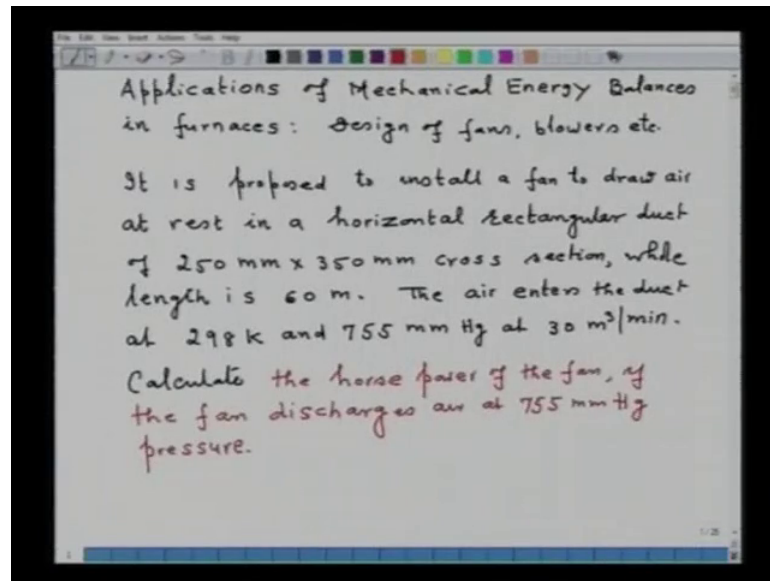 File Edit View Insert Actions Tools Help
Applications of Mechanical Energy Balances
in furnaces: Design of fans, blowers etc.
It is proposed to install a fan to draw air
at rest in a horizontal rectangular duct
of 250 mm x 350 mm cross section, while
length is 60 m. The air enters the duct
at 298 K and 755 mm Hg at 30 m³/min.
Calculate the horse power of the fan, if
the fan discharges air at 755 mm Hg
pressure.